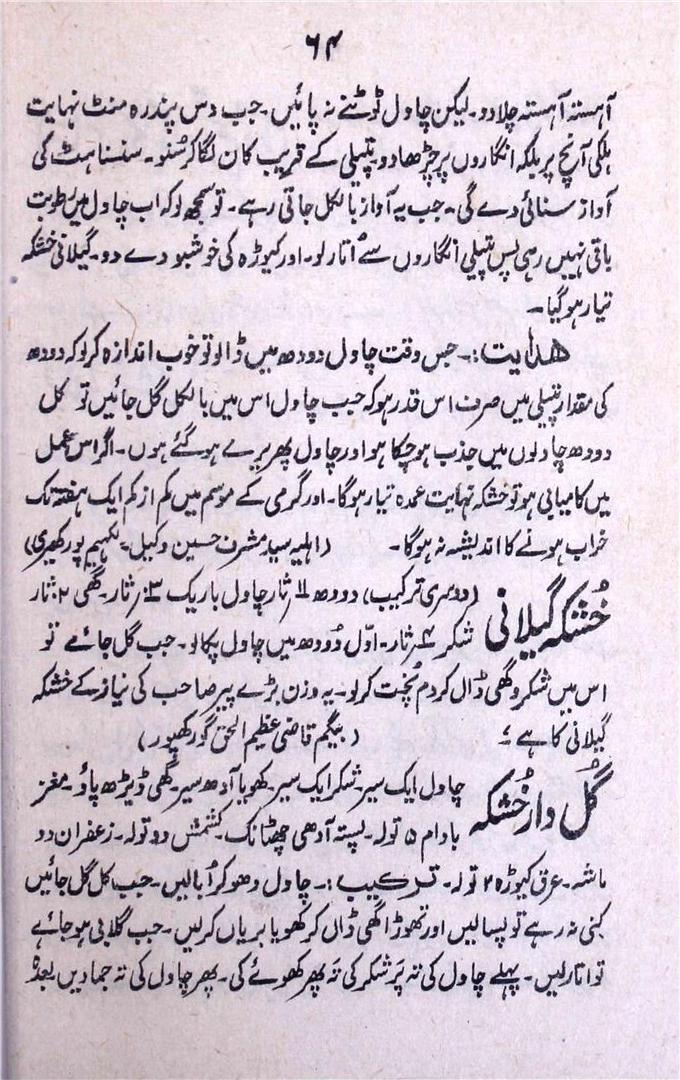 ۶۴
آہستہ آہستہ چلا دو۔ لیکن چاول ٹوٹنے نہ پائیں۔ جب دس پندرہ منٹ نہایت
ہلکی آنچ پر بلکہ انگاروں پر چڑھا دو۔ پتیلی کے قریب کان لگا کر سنو۔ سنسناہٹ کی
آواز سنائی دے گی۔ جب یہ آواز بالکل جاتی رہے۔ تو سمجھ لو کہ اب چاول میں رطوبت
باقی نہیں رہی پس پتیلی انگاروں سے اُتار لو۔ اور کیوڑہ کی خوشبو دے دو۔ گیلانی خشکہ
تیار ہو گیا۔
ھدایت:۔ جس وقت چاول دودھ میں ڈالو تو خوب اندازہ کر لو کہ دودھ
کی مقدار پتیلی میں صرف اس قدر ہو کہ جب چاول اس میں بالکل گل جائیں تو کل
دودھ چاولوں میں جذب ہو چکا ہو اور چاول پھریرے ہو گئے ہوں۔ اگر اس عمل
میں کامیابی ہو تو خشکہ نہایت عمدہ تیار ہوگا۔ اور گرمی کے موسم میں کم از کم ایک ہفتہ تک
خراب ہونے کا اندیشہ نہ ہوگا۔ (اہلیہ سید مشرف حسین وکیل۔ لکھیم پور کھیری)
خُشکہ گیلانی (دوسری ترکیب) دودھ ثار چاول باریک ثار۔ گھی ثار
شکر ثار۔ اوّل دُودھ میں چاول پکالو۔ جب گل جائے تو
اس میں شکر و گھی ڈال کر دم پُخت کر لو۔ یہ وزن بڑے پیر صاحب کی نیاز کے خشکہ
گیلانی کا ہے ؛ (بیگم قاضی عظیم الحق گورکھپور)
گُل دار خُشکہ چاول ایک سیر۔ شکر ایک سیر۔ کھویا آدھ سیر۔ گھی ڈیڑھ پاؤ۔ مغز
بادام ۵ تولہ۔ پستہ آدھی چھٹانک۔ کشمش دو تولہ۔ زعفران دو
ماشہ۔ عرق کیوڑہ ۲ تولہ۔ ترکیب:۔ چاول دھو کر اُبالیں۔ جب کل گل جائیں
کنی نہ رہے تو پسالیں اور تھوڑا گھی ڈال کر کھویا بریاں کر لیں۔ جب گلابی ہو جائے
تو اتار لیں۔ پہلے چاول کی تہ پَر شکر کی تَہ پھر کھوئے کی۔ پھر چاول کی تہ جما دیں۔ بعدہٗ